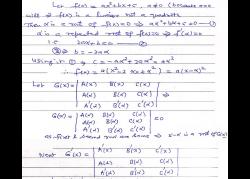 Let f(x) = ax²+bx+c, a≠0 (because a=0
will ⇒ f(x) is a linear not a quadratic
Then α is a root of f(x)=0 ⇒ aα²+bα+c=0 —①
α is a repeated root of f(x)=0 ⇒ f'(α)=0
i.e 2aα+b=0 —②
② ⇒ b=-2aα
Using in ① ⇒ c = -aα²+2aα² = aα²
∴ f(x) = a(x²-2αx+α²) = a(x-α)²
Let G(x) = | A(x) B(x) C(x) |
| A(α) B(α) C(α) |
| A'(α) B'(α) C'(α) |
G(α) = | A(α) B(α) C(α) | = 0
| A(α) B(α) C(α) |
| A'(α) B'(α) C'(α) |
as first & second rows are same ⇒ x-α is a root of G(x)
Next G'(x) = | A'(x) B'(x) C'(x) |
| A(α) B(α) C(α) |
| A'(α) B'(α) C'(α) |